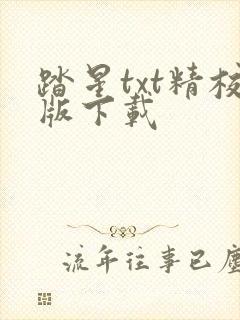 踏星txt精校
版下载
流年往事已尘